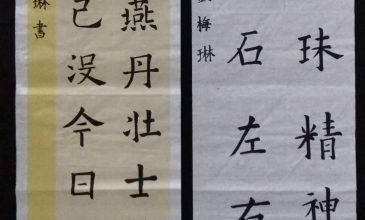 珠精神
石左右
梅琳
燕丹壯士
已没今日
琳書